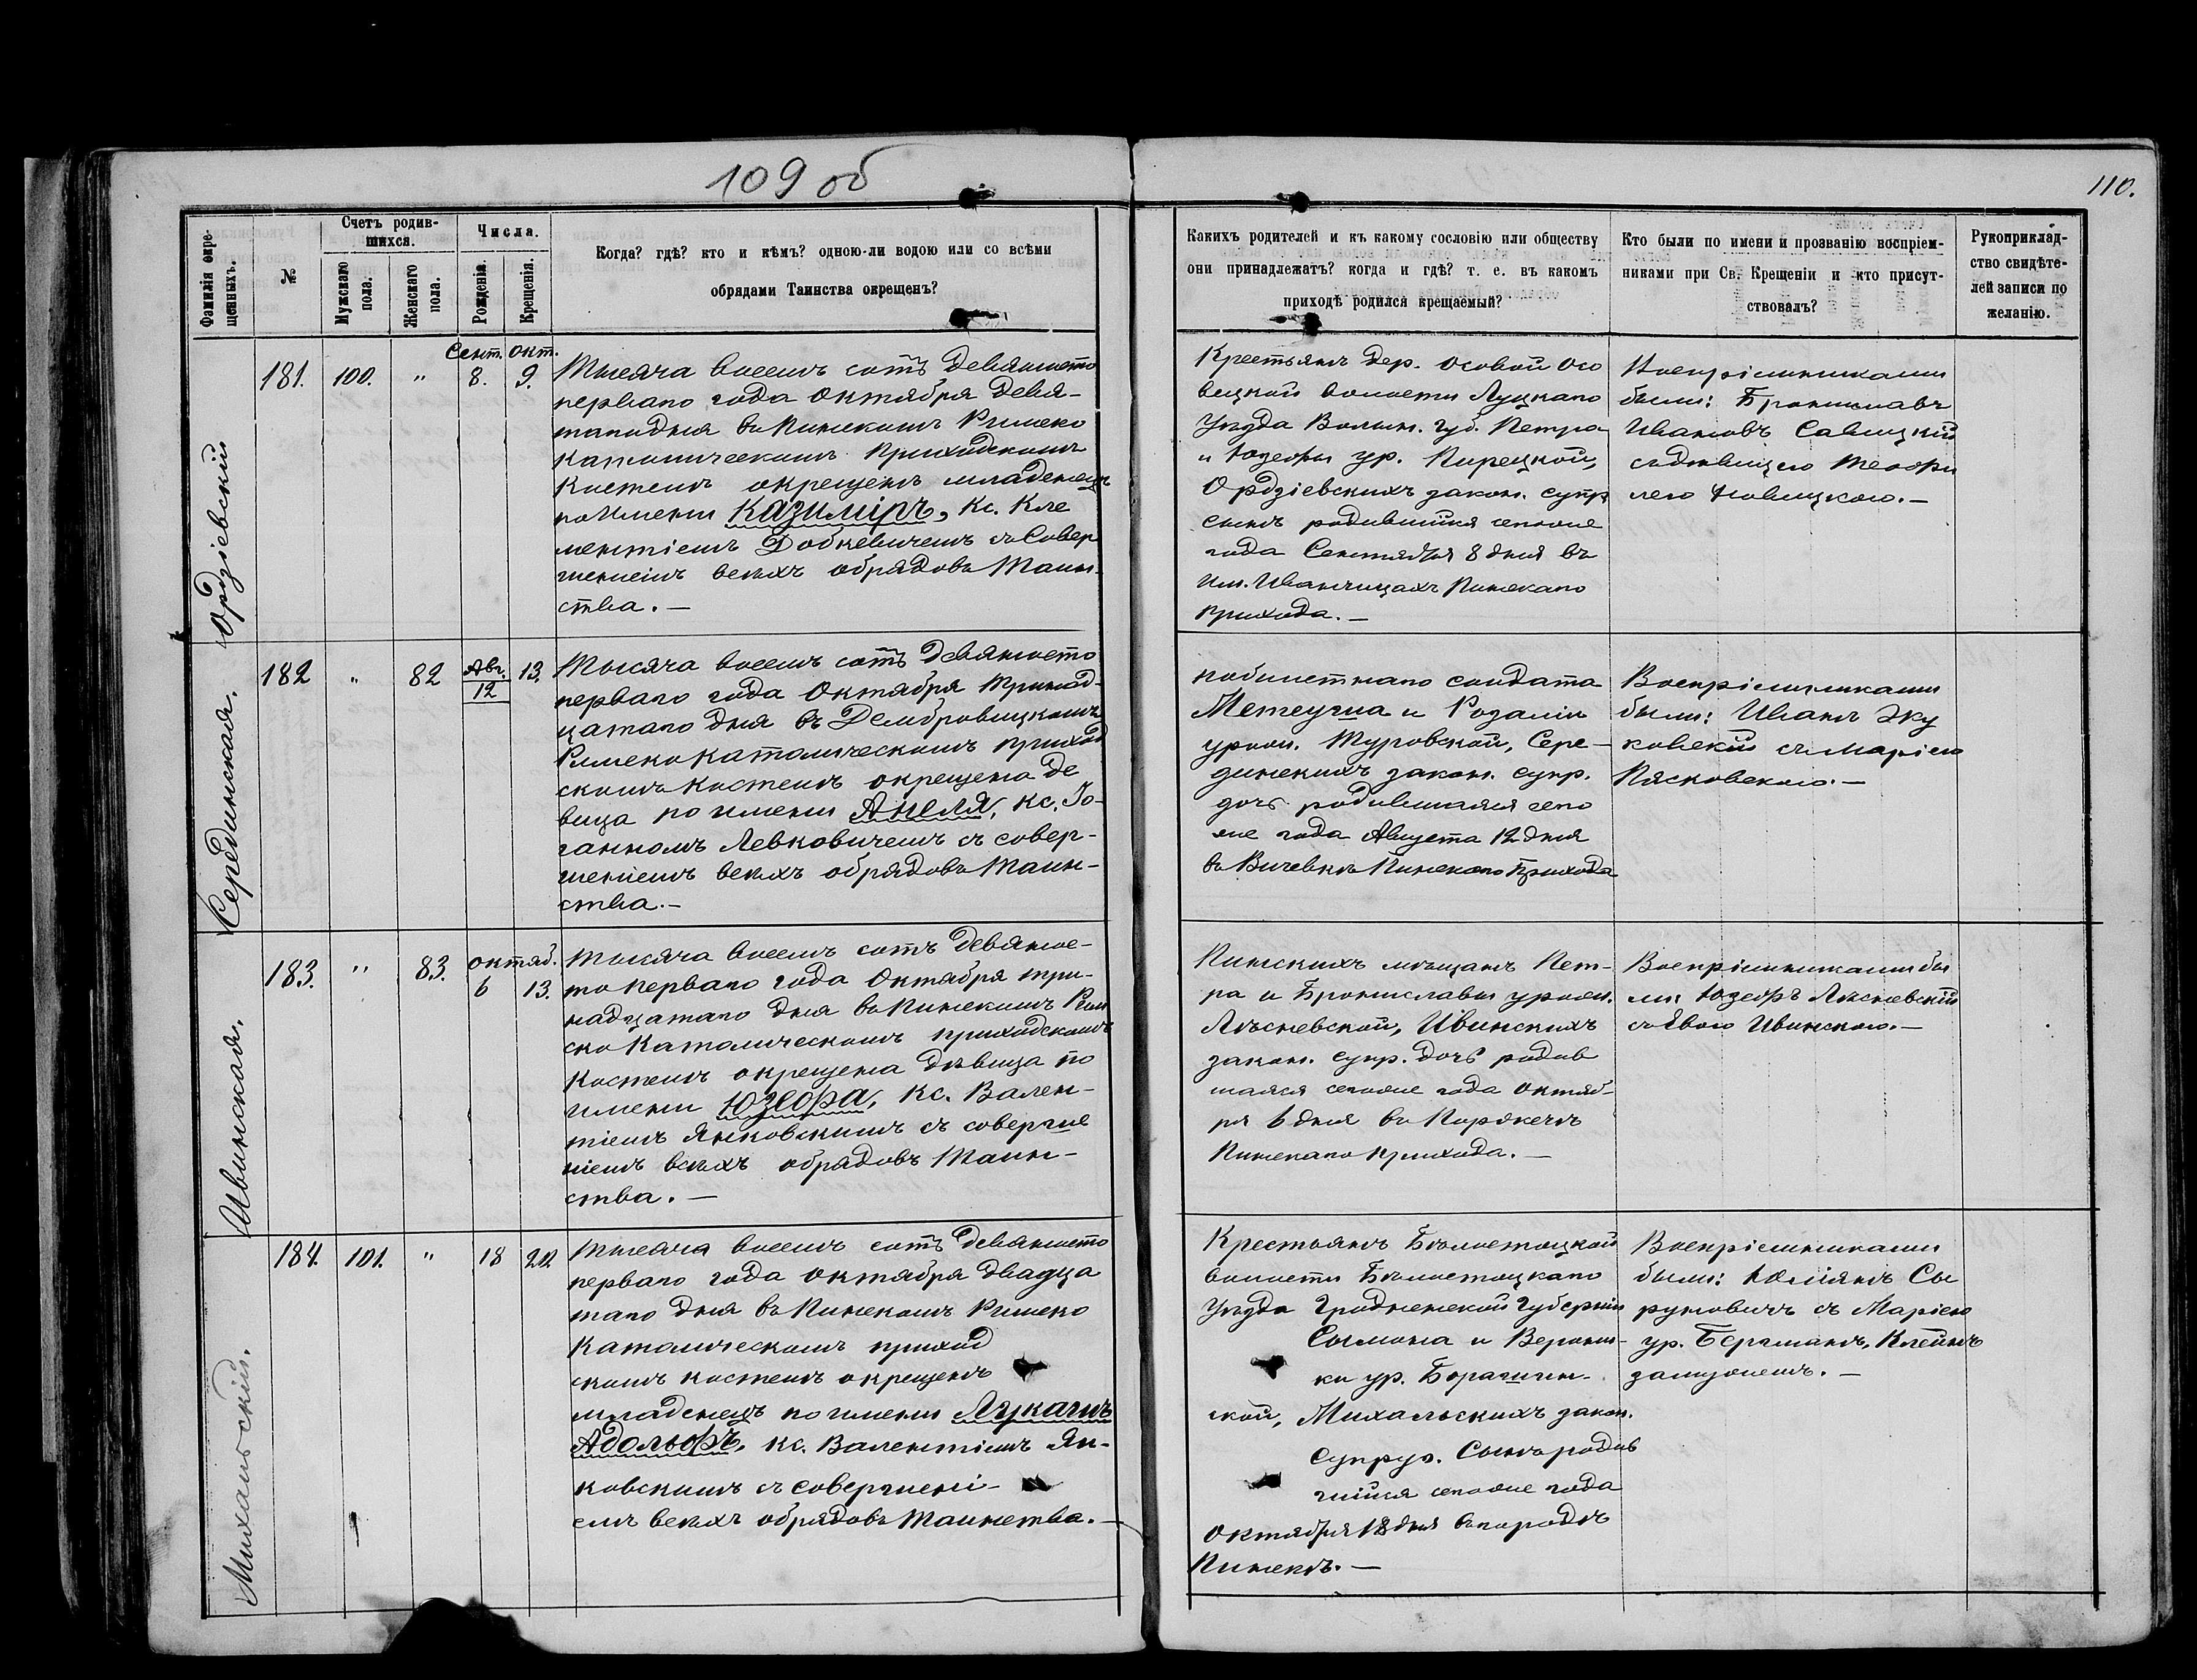 109 об
110.
Фамилія окре-
щенныхъ.
№
Счетъ родив-
шихся.
Мужскаго
пола.
Женскаго
пола.
Числа.
Рожденія.
Крещенія.
Когда? гдѣ? кто и кѣмъ? одною-ли водою или со всѣми
обрядами Таинства окрещенъ?
Какихъ родителей и къ какому сословію или обществу
они принадлежатъ? когда и гдѣ? т. е. въ какомъ
приходѣ родился крещаемый?
Кто были по имени и прозванію воспріем-
никами при Св. Крещеніи и кто присут-
ствовалъ?
Рукоприклад-
ство свидѣте-
лей записи по
желанію.
Ордзіевскій
181. 100. " Сент. 8. Окт. 9.
Тысяча восемь сотъ девяносто
перваго года Октября девя-
таго дня въ Пинскомъ Римско
Католическомъ Приходскомъ
Костелѣ окрещенъ младенецъ
по имени Казиміръ, Кс. Кле
ментіемъ Добкевичемъ съ Совер
шеніемъ всѣхъ обрядовъ Таин-
ства. —
Крестьянъ дер. Особой Осо
вецкой волости Луцкаго
Уѣзда Волын. губ. Петра
и Юзефы ур. Пирецкой,
Ордзіевскихъ закон. супр
сынъ родившійся сего же
года Сентября 8 дня въ
им. Иванчицахъ Пинскаго
прихода. —
Воспріемниками
были: Брониславъ
Ивановъ Савицкій
съ дѣвицею Теофи
лею Новицкою. —
Серединская.
182 " 82 Авг. 12 13.
Тысяча восемь сотъ девяносто
перваго года Октября тринад-
цатаго дня въ Домбровицкомъ
Римско Католическомъ приход
скомъ Костелѣ окрещена дѣ
вица по имени Анеля, кс. Іо-
ганномъ Левковичемъ съ совер-
шеніемъ всѣхъ обрядовъ Таин-
ства. —
побилетнаго солдата
и Розаліи
урож. Туровской, Сере-
динскихъ закон. супр.
дочь родившаяся сего
же года Августа 12 дня
въ Вичевкѣ Пинскаго Прихода
Воспріемниками
были: Иванъ Жу
ковскій съ Маріею
Пясковскою. —
Ивинская.
183. " 83. Октяб. 6 13.
Тысяча восемь сотъ девянос-
то перваго года Октября три-
надцатаго дня въ Пинскомъ Рим
ско Католическомъ приходскомъ
Костелѣ окрещена дѣвица по
имени Юзефа, кс. Вален-
тіемъ Янковскимъ съ соверше
ніемъ всѣхъ обрядовъ Таин-
ства. —
Пинскихъ мѣщанъ Пет-
ра и Брониславы урож.
Лѣсневской, Ивинскихъ
закон. супр. дочь родив
шаяся сего же года Октяб-
ря 6 дня въ Порѣчьѣ
Пинскаго прихода. —
Воспріемниками бы
ли: Юзефъ Лѣсневскій
съ Евою Ивинскою. —
Михальскій.
184. 101. " 18 20.
Тысяча восемь сотъ девяносто
перваго года Октября двадца
таго дня въ Пинскомъ Римско
Католическомъ приход
скомъ костелѣ окрещенъ
младенецъ по имени Лукашъ
Адольфъ, кс. Валентіемъ Ян-
ковскимъ съ совершені-
емъ всѣхъ обрядовъ Таинства. —
Крестьянъ Бѣлостоцкой
волости Бѣлостоцкаго
Уѣзда Гродненской Губерніи
Сымона и Верони-
ки ур. Борашин-
ской, Михальскихъ закон.
Супруг. Сынъ родив
шійся сего же года
Октября 18 дня въ городѣ
Пинскѣ. —
Воспріемниками
были: Юліянъ Сы
руновичъ съ Маріею
ур. Бергманъ, Клейнъ